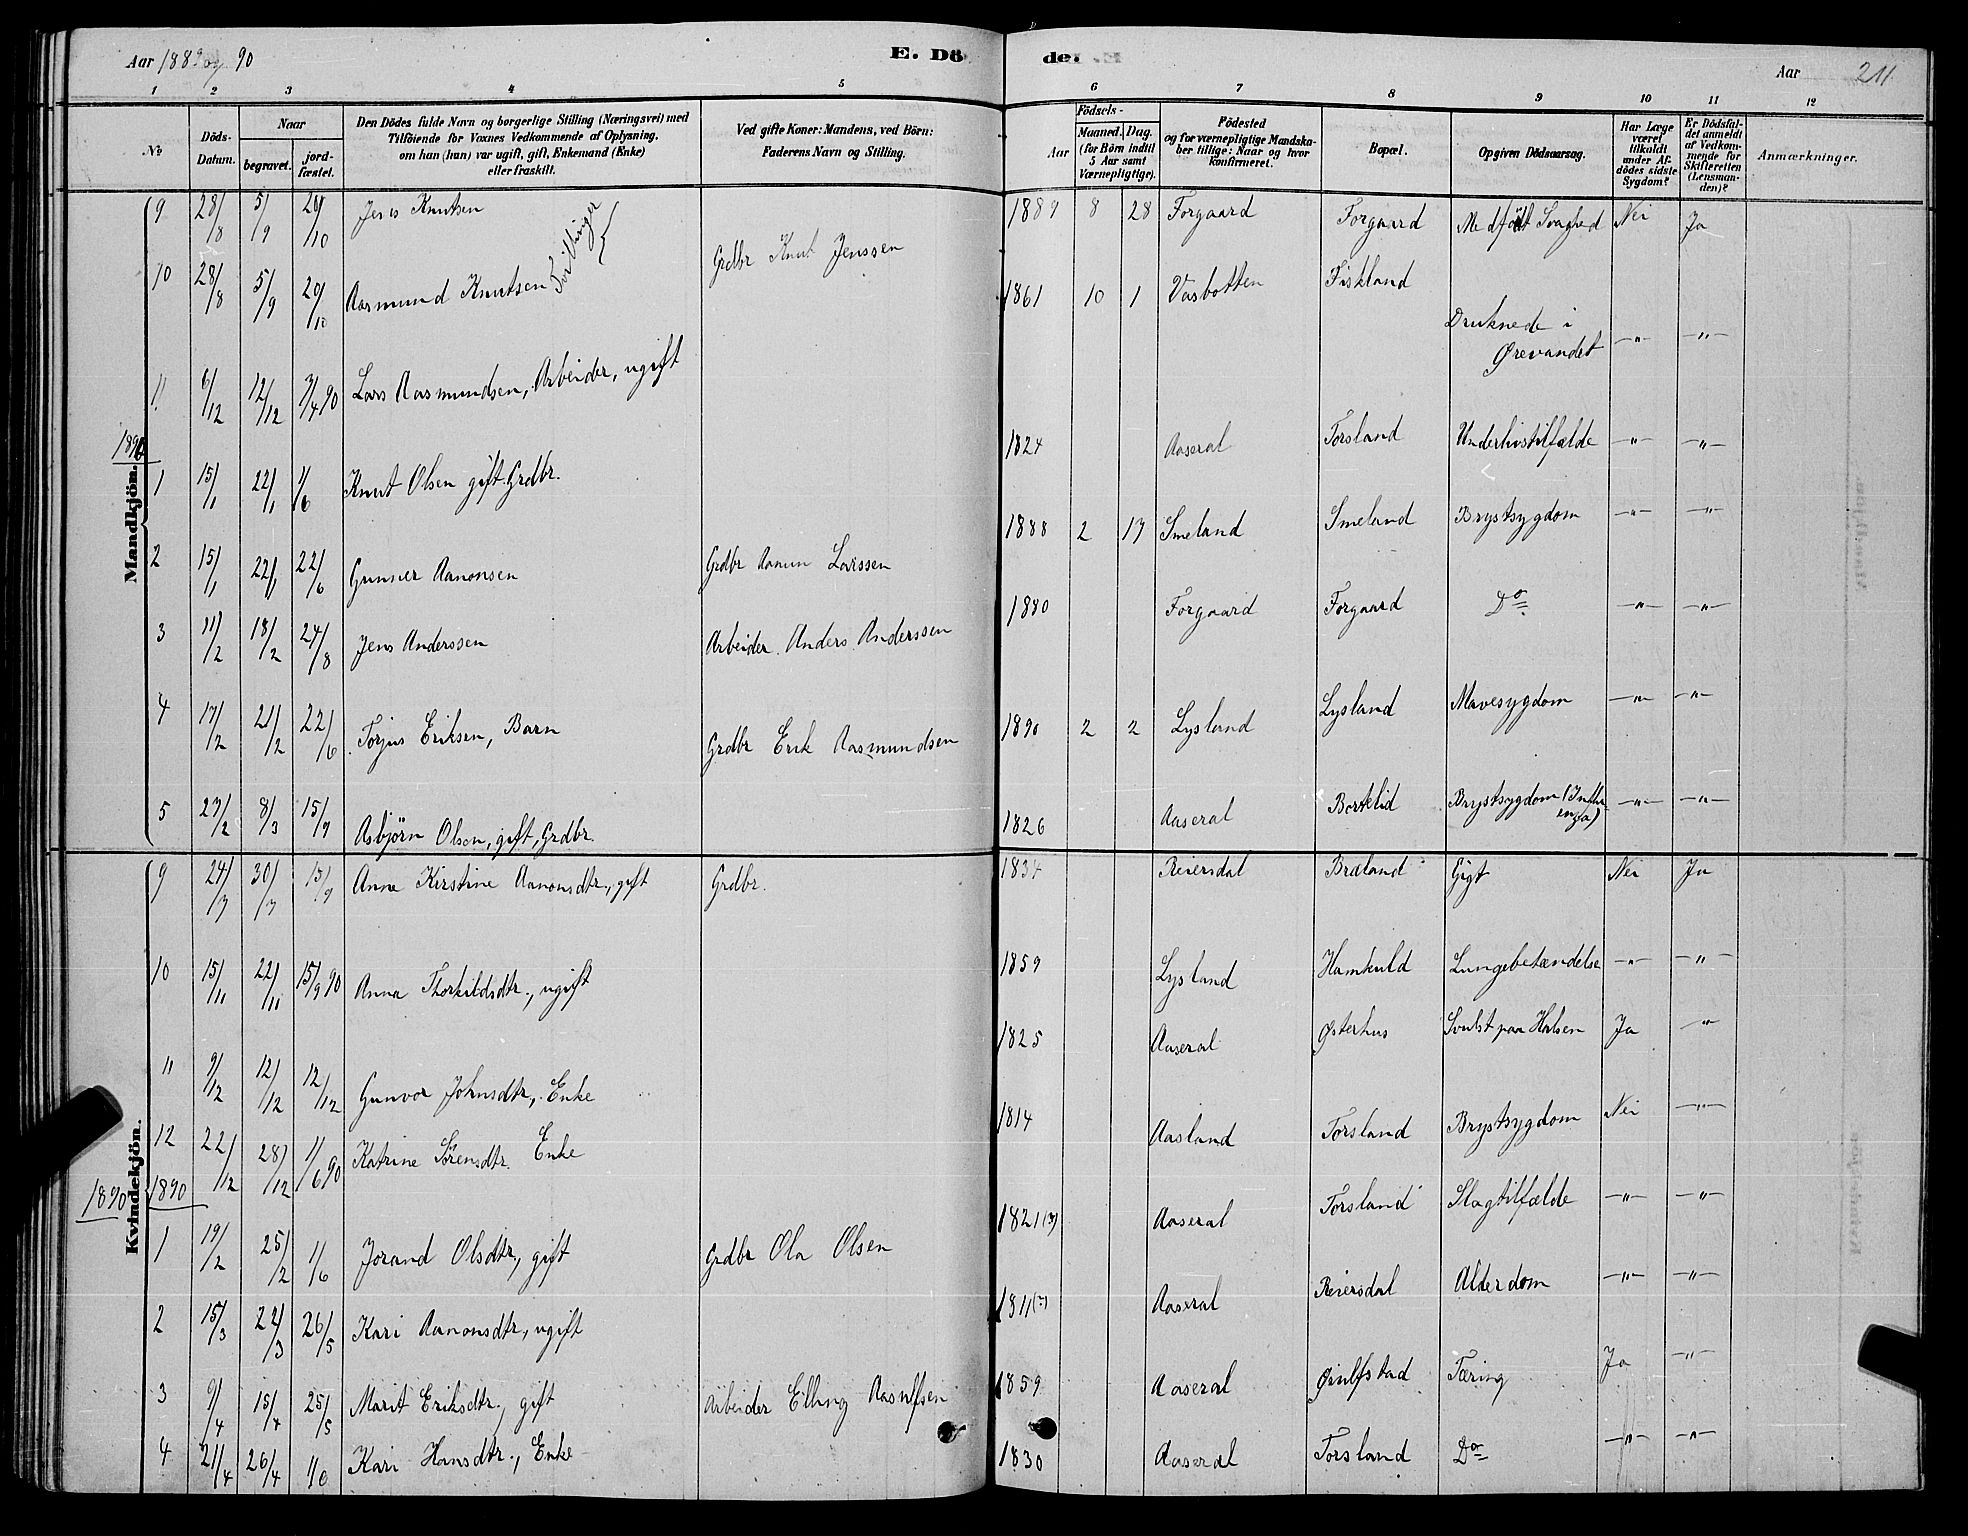 Aar 1889 og 90
E. Dö
de
Aar 211
1 2 3 4 5 6 7 8 9 10 11 12
No
Döds-Datum.
Naar
begravet.
jord-fæstet.
Den Dödes fulde Navn og borgerlige Stilling (Næringsvei) med
Tilföiende for Voxnes Vedkommende af Oplysning,
om han (hun) var ugift, gift, Enkemand (Enke)
eller fraskilt.
Ved gifte Koner: Mandens, ved Börn:
Faderens Navn og Stilling.
Aar
Födsels-
Maaned. Dag.
(for Börn indtil
5 Aar samt
Værnepligtige).
Födested
og for værnepligtige Mandska-
ber tillige: Naar og hvor
konfirmeret.
Bopæl.
Opgiven Dödsaarsag.
Har Læge
været
tilkaldt
under Af-
dödes sidste
Sygdom?
Er Dödsfal-
det anmeldt
af Vedkom-
mende for
Skifteretten
(Lensman-
den)?
Anmærkninger.
Mandkjön.
9 28/8 5/9 20/10 Jens Knutsen Tvillinger 1889 8 28 Forgaard Forgaard Medfödt Svaghed Nei Ja
Grdbr Knut Jenssen
10 28/8 5/9 20/10 Aasmund Knutsen
1861 10 1 Vasbotten Fiskland Druknede i Ørevandet -"- -"-
11 6/12 12/12 3/4 90 Lars Aasmundsen, Arbeider, ugift
1890
1824 Aaseral Torsland Underlivstilfælde -"- -"-
1 15/1 22/1 1/6 Knut Olsen gift Grdbr.
1888 2 17 Smeland Smeland Brystsygdom -"- -"-
2 15/1 22/1 22/6 Gunner Aanonsen Grdbr Aanun Larssen
1880 Forgaard Forgaard Do -"- -"-
3 11/2 18/2 24/8 Jens Anderssen Arbeider Anders Anderssen
1890 2 2 Lysland Lysland Mavesygdom -"- -"-
4 17/2 21/2 22/6 Torjus Eriksen, Barn Grdbr Erik Aasmundsen
1826 Aaseral Bortelid Brystsygdom (Influenza) -"- -"-
5 27/2 8/3 15/9 Asbjörn Olsen, gift, Grdbr.
Kvindekjön.
9 24/7 30/7 15/9 Anne Kirstine Aanonsdtr., gift Grdbr. 1834 Reiersdal Breland Gigt Nei Ja
1859 Lysland Homkuld Lungebetændelse -"- -"-
10 15/11 22/11 15/9 90 Anna Thorkildsdtr., ugift
1825 Aaseral Østerhus Svulst paa Halsen Ja -"-
11 9/12 12/12 12/12 Gunvor Johnsdtr., Enke
1814 Aasland Torsland Brystsygdom Nei -"-
12 22/12 28/12 1/6 90 Katrine Sörensdtr. Enke
1890 1890
1821 (3) Aaseral Torsland Slagtilfælde -"- -"-
1 19/2 25/2 1/6 Jorand Olsdtr, gift Grdbr Ola Olsen
1811 (?) Aaseral Reiersdal Alderdom -"- -"-
2 15/3 22/3 26/5 Kari Aanonsdtr, ugift
1859 Aaseral Øiulfstad Tæring Ja -"-
3 9/4 15/4 25/5 Marit Eriksdtr., gift Arbeider Elling Aasulfsen
1830 Aaseral Torsland Do -"- -"-
4 21/4 26/4 1/6 Kari Hansdtr., Enke